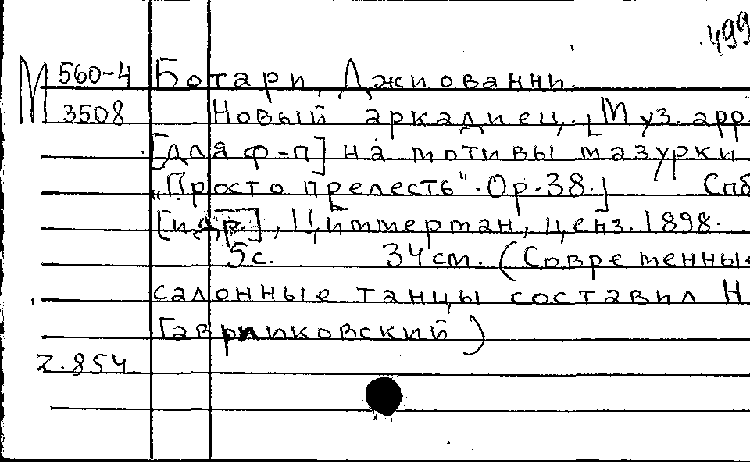 499
М 560-4 Ботари, Джиованни.
3508 Новый аркадиец. [Муз. арр.
[для ф-п] на мотивы мазурки
"Просто прелесть". Ор. 38.] Спб
[и др.], Циммерман, ценз. 1898.
5с. 34 см. (Современные
салонные танцы составил Н
Гавриковский)
2.854